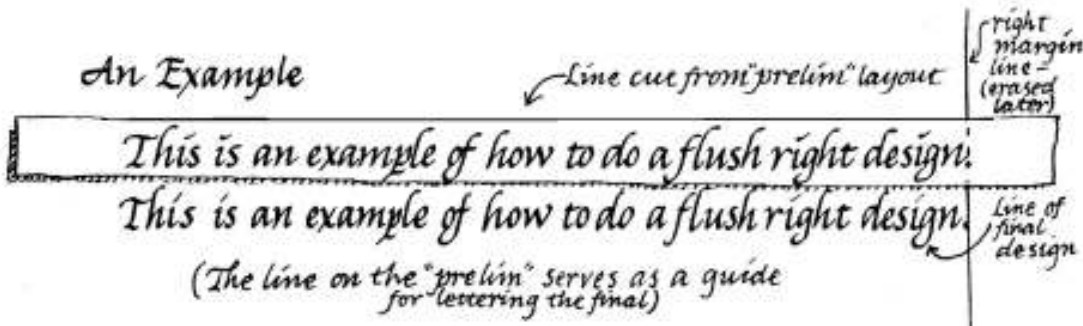 An Example
Line cue from "prelim" layout
right
margin
line-
(erased
later)
This is an example of how to do a flush right design.
This is an example of how to do a flush right design.
Line of
final
design
(The line on the "prelim" serves as a guide
for lettering the final)